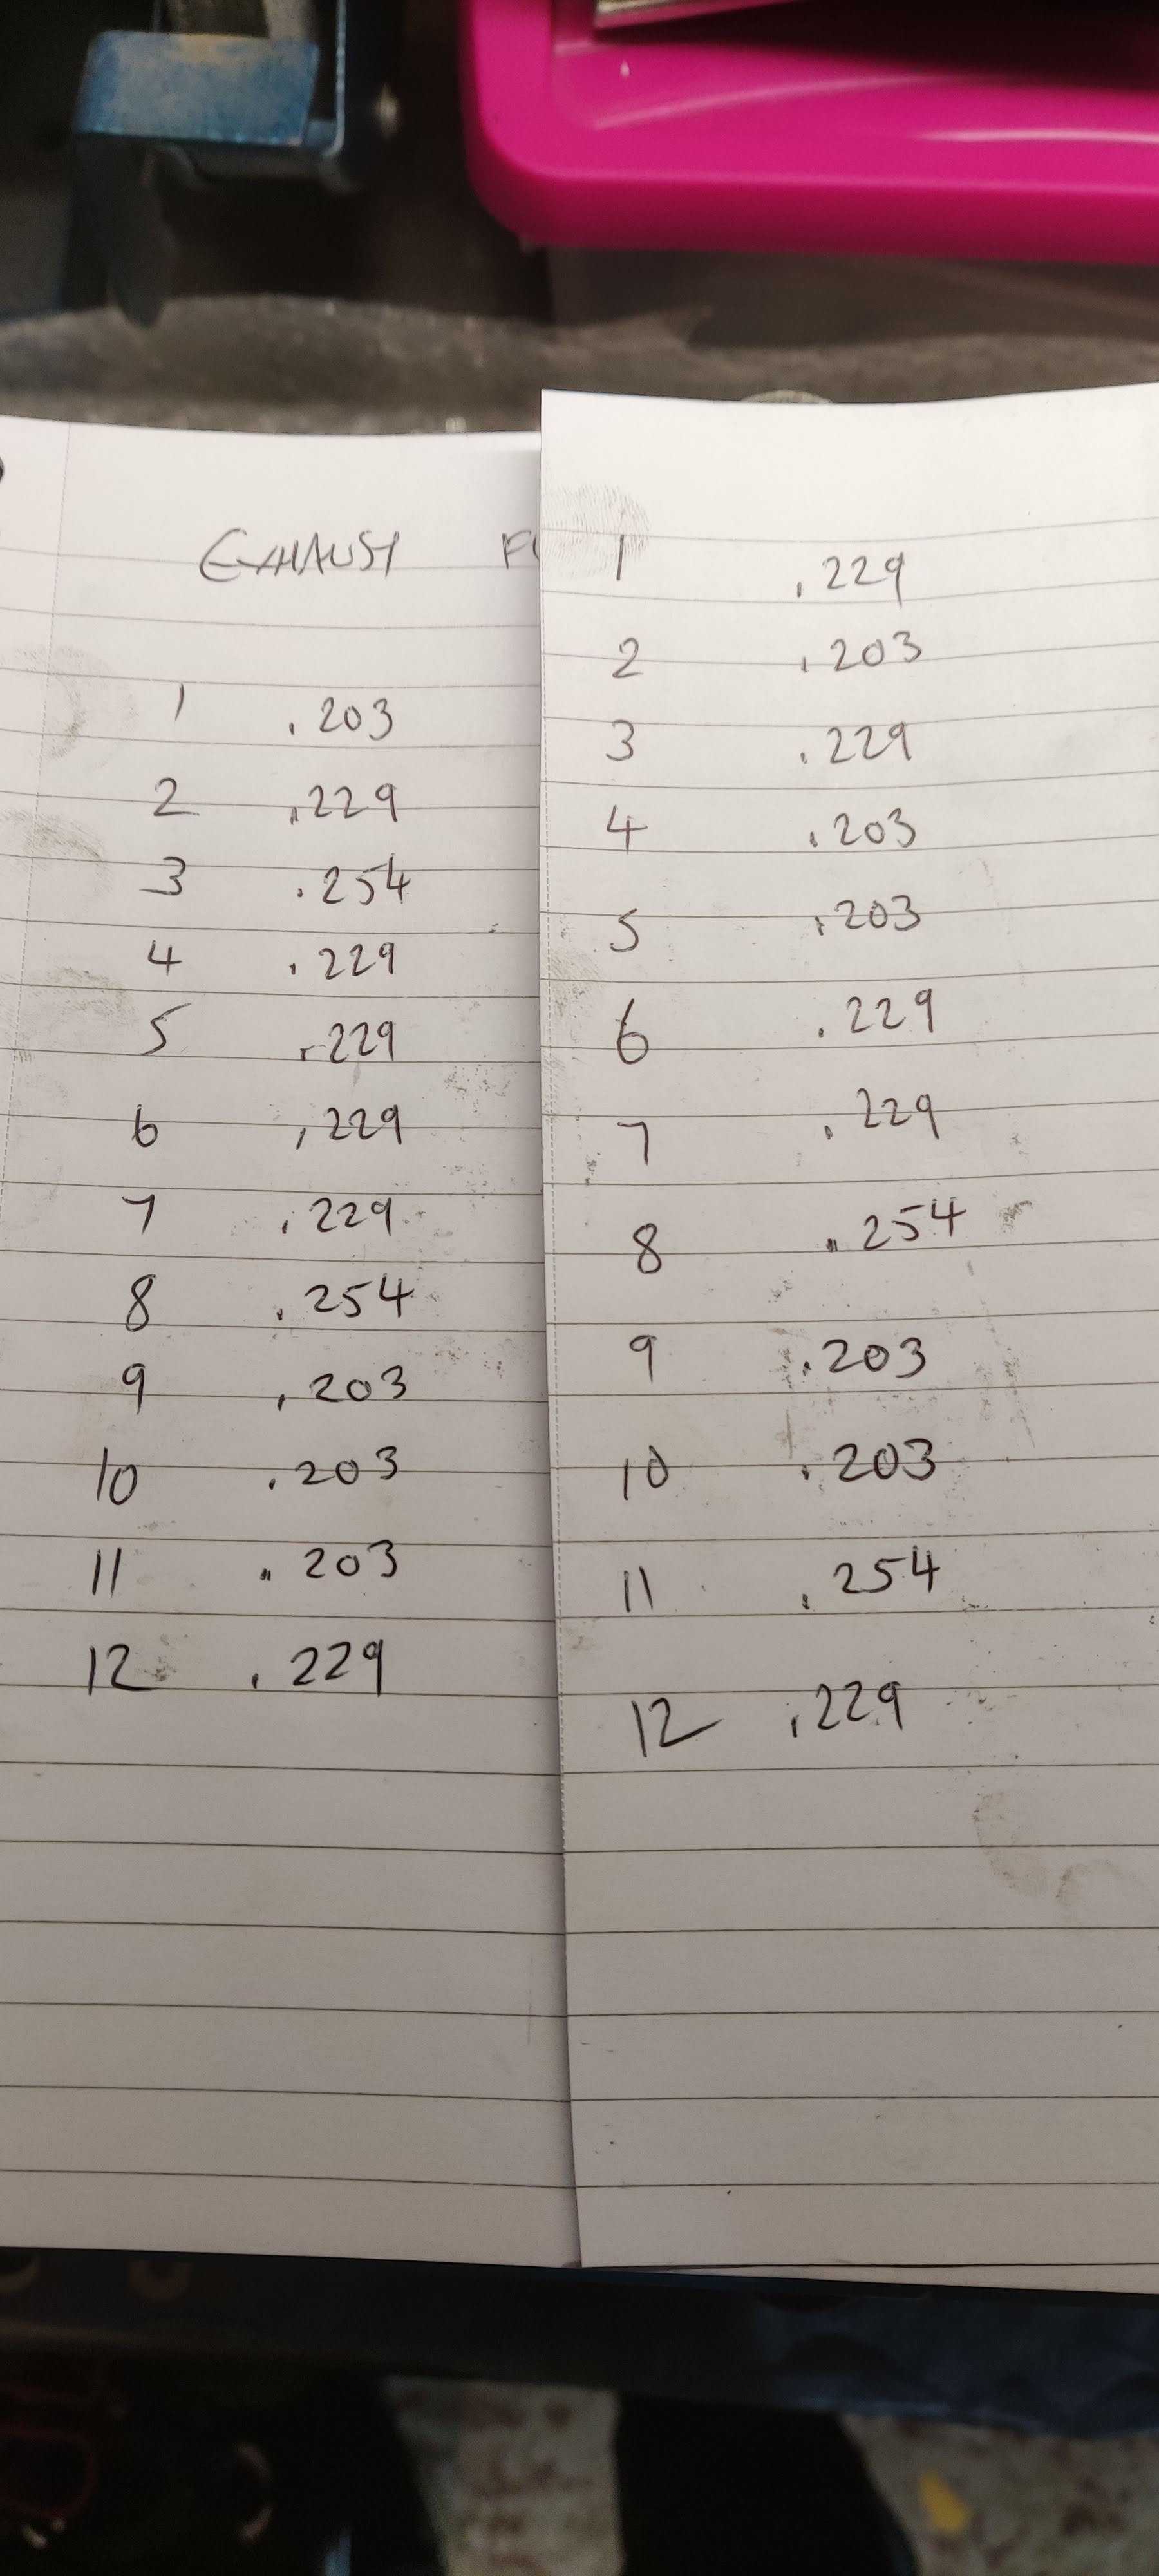 EXHAUST
1 .203
2 .229
3 .254
4 .229
5 .229
6 .229
7 .229
8 .254
9 .203
10 .203
11 .203
12 .229
1 .229
2 .203
3 .229
4 .203
5 .203
6 .229
7 .229
8 .254
9 .203
10 .203
11 .254
12 .229